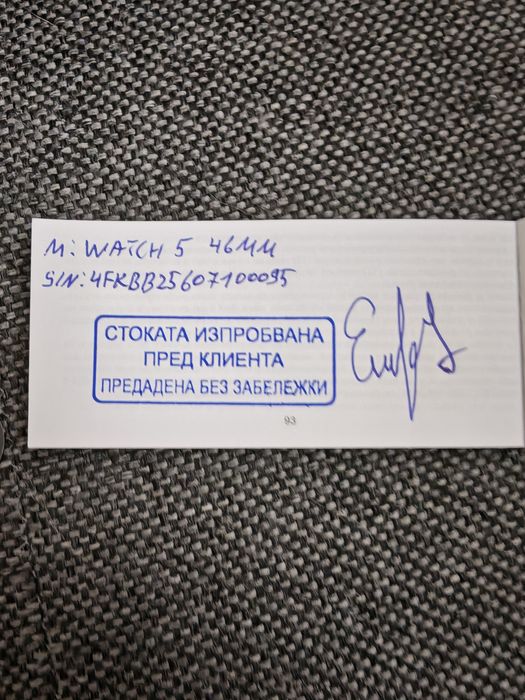 M: WATCH 5 46MM
S/N: 4FKBB25607100095
СТОКАТА ИЗПРОБВАНА
ПРЕД КЛИЕНТА
ПРЕДАДЕНА БЕЗ ЗАБЕЛЕЖКИ
93